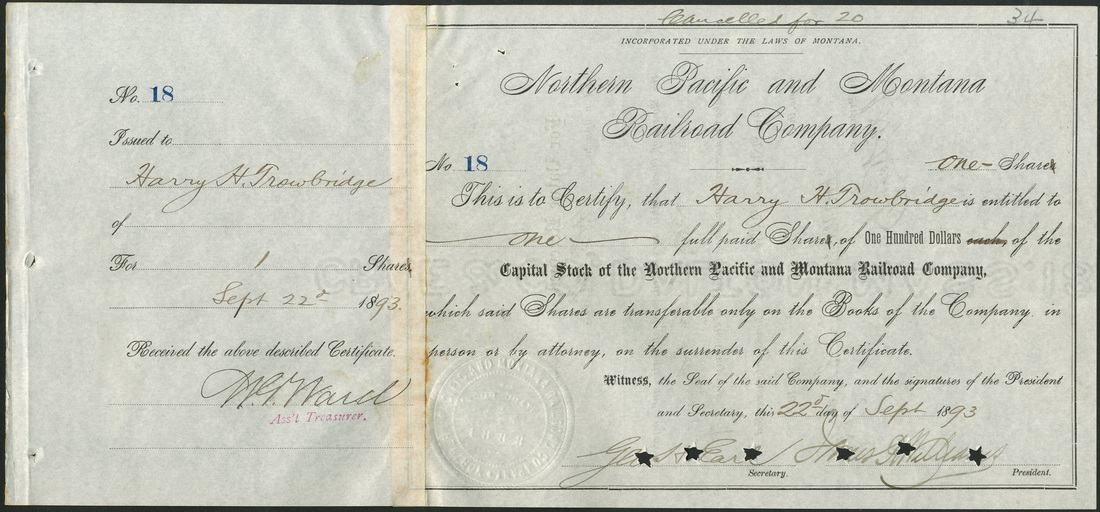 Cancelled for 20
34
No. 18
Issued to
Harry H. Trowbridge
of
For 1 Shares
Sept 22d 1893.
Received the above described Certificate.
W. G. Ward
Ass't Treasurer.
INCORPORATED UNDER THE LAWS OF MONTANA.
Northern Pacific and Montana
Railroad Company.
No 18
One Shares
This is to Certify, that Harry H. Trowbridge is entitled to
one full paid Shares, of One Hundred Dollars each, of the
Capital Stock of the Northern Pacific and Montana Railroad Company,
which said Shares are transferable only on the Books of the Company, in
person or by attorney, on the surrender of this Certificate.
Witness, the Seal of the said Company, and the signatures of the President
and Secretary, this 22d day of Sept 1893
Geo H Earl
Secretary.
President.